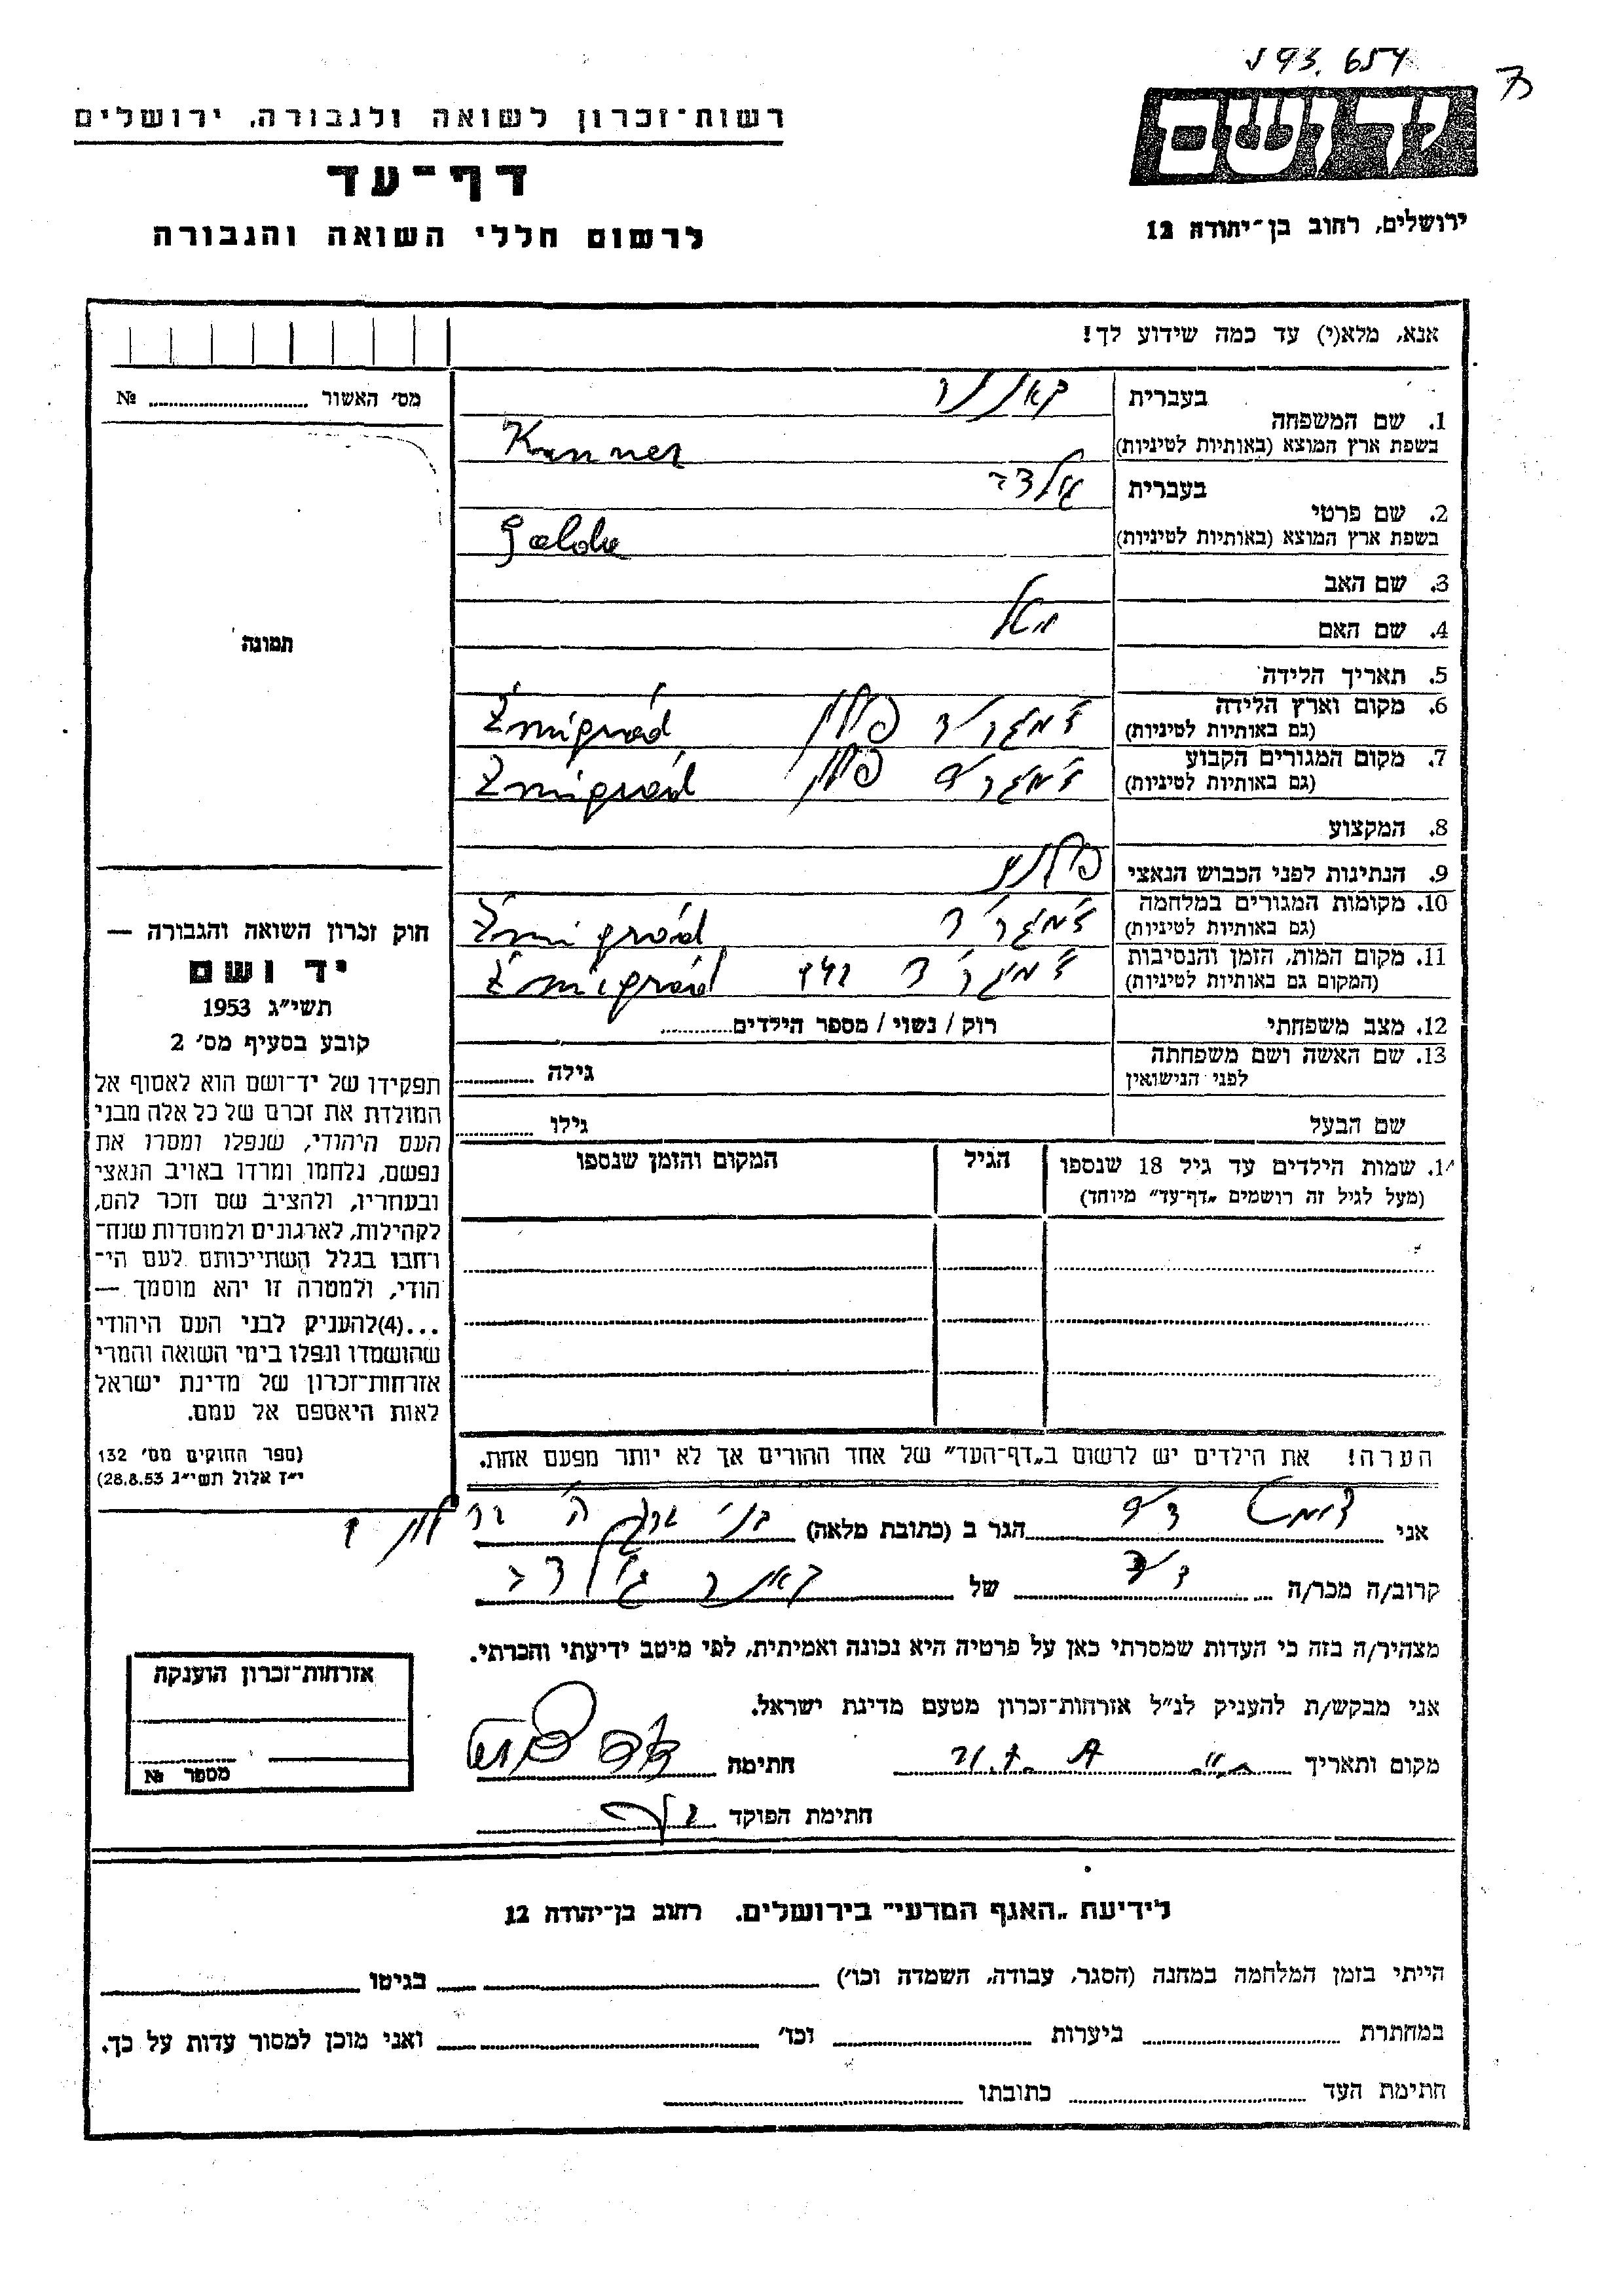 רשות־זכרון לשואה ולגבורה, ירושלים
דף־עד
לרשום חללי השואה והגבורה
ידושם
ירושלים, רחוב בן־יהודה 12
אנא, מלא(י) עד כמה שידוע לך!
מס׳ האשור №
1. שם המשפחה
בעברית
קאננר
בשפת ארץ המוצא (באותיות לטיניות)
Kanner
2. שם פרטי
בעברית
בשפת ארץ המוצא (באותיות לטיניות)
Golda
3. שם האב
4. שם האם
5. תאריך הלידה
6. מקום וארץ הלידה
(גם באותיות לטיניות)
פולין Żmigród
7. מקום המגורים הקבוע
(גם באותיות לטיניות)
פולין Żmigród
8. המקצוע
9. הנתינות לפני הכבוש הנאצי
10. מקומות המגורים במלחמה
(גם באותיות לטיניות)
Żmigród
11. מקום המות, הזמן והנסיבות
(המקום גם באותיות לטיניות)
Żmigród
12. מצב משפחתי
רוק / נשוי / מספר הילדים
13. שם האשה ושם משפחתה
לפני הנישואין
גילה
שם הבעל
גילו
שמות הילדים עד גיל 18 שנספו
(מעל לגיל זה רושמים „דף־עד" מיוחד)
הגיל
המקום והזמן שנספו
הערה! את הילדים יש לרשום ב„דף־העד" של אחד ההורים אך לא יותר מפעם אחת.
תמונה
חוק זכרון השואה והגבורה —
יד ושם
תשי״ג 1953
קובע בסעיף מס׳ 2
תפקידו של יד־ושם הוא לאסוף אל
המולדת את זכרם של כל אלה מבני
העם היהודי, שנפלו ומסרו את
נפשם, נלחמו ומרדו באויב הנאצי
ובעוזריו, ולהציב שם וזכר להם,
לקהילות, לארגונים ולמוסדות שנח־
רחבו בגלל השתייכותם לעם הי־
הודי, ולמטרה זו יהא מוסמך —
...(4)להעניק לבני העם היהודי
שהושמדו ונפלו בימי השואה והמרי
אזרחות־זכרון של מדינת ישראל
לאות היאספם אל עמם.
(ספר החוקים מס׳ 132
י״ז אלול תשי״ג 28.8.53)
אני הגר ב (כתובת מלאה) בני ברק
קרוב/ה מכר/ה דוד של
מצהיר/ה בזה כי העדות שמסרתי כאן על פרטיה היא נכונה ואמיתית, לפי מיטב ידיעתי והכרתי.
אני מבקש/ת להעניק לנ״ל אזרחות־זכרון מטעם מדינת ישראל.
מקום ותאריך חתימה
חתימת הפוקד
אזרחות־זכרון הוענקה
מספר №
לידיעת „האגף המדעי" בירושלים. רחוב בן־יהודה 12
הייתי בזמן המלחמה במחנה (הסגר, עבודה, השמדה וכו׳) בגיטו
במחתרת ביערות וכו׳ ואני מוכן למסור עדות על כך.
חתימת העד כתובתו